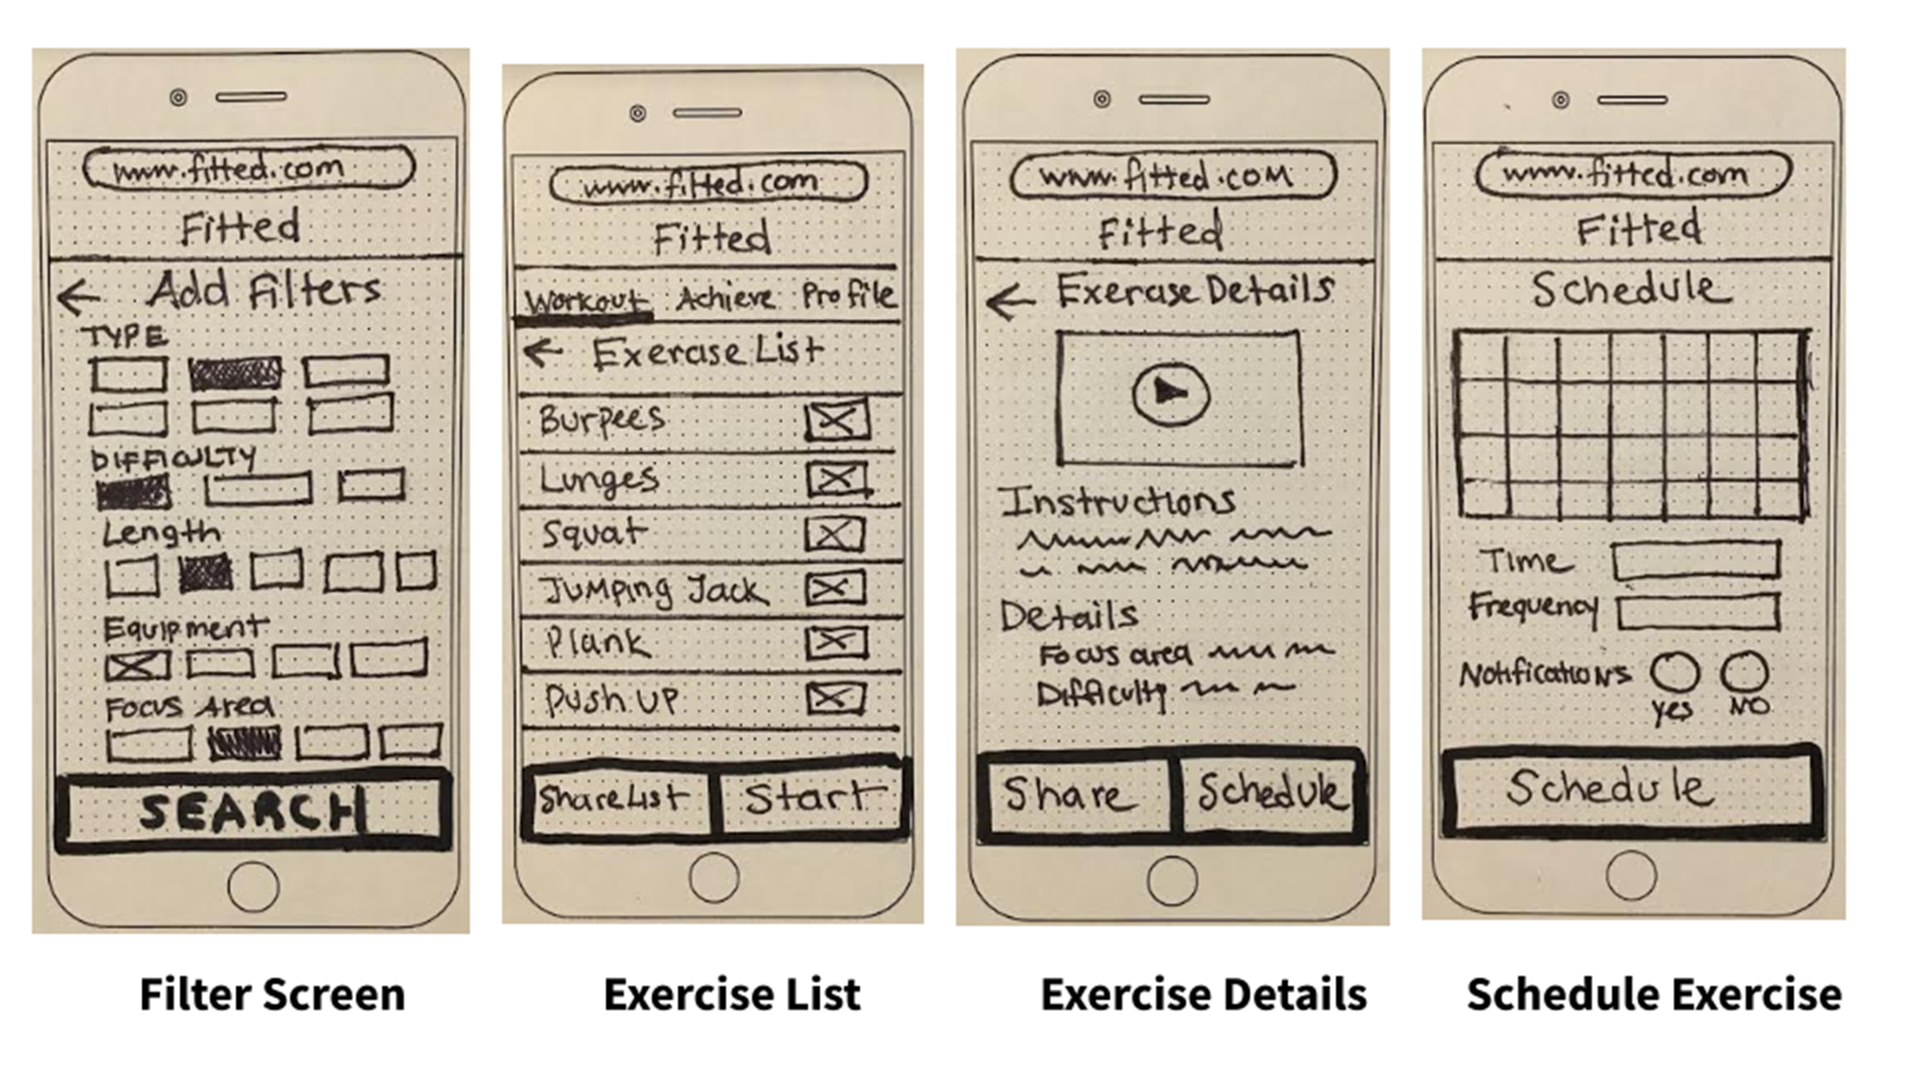 www.fitted.com
Fitted
← Add Filters
TYPE
DIFFICULTY
Length
Equipment
Focus Area
SEARCH
Filter Screen
www.fitted.com
Fitted
Workout Achieve Profile
← Exercise List
Burpees
Lunges
Squat
Jumping Jack
Plank
Push UP
Share List Start
Exercise List
www.fitted.com
Fitted
← Exercise Details
Instructions
Details
Focus area
Difficulty
Share Schedule
Exercise Details
www.fitted.com
Fitted
Schedule
Time
Frequency
Notifications
yes NO
Schedule
Schedule Exercise